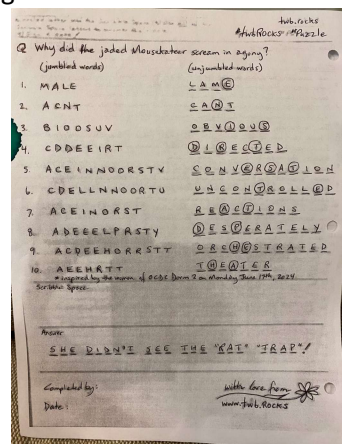 twb.rocks
#twbRocks #Puzzle
Q Why did the jaded Mousekateer scream in agony?
(jumbled words) (unjumbled words)
1. MALE LAME
2. ACNT CANT
3. BIOOSUV OBVIOUS
4. CDDEEIRT DIRECTED
5. ACEINNOORSTV CONVERSATION
6. CDELLNNOORTU UNCONTROLLED
7. ACEINORST REACTIONS
8. ADEEELPRSTY DESPERATELY
9. ACDEEHORRSTT ORCHESTRATED
10. AEEHRTT THEATER
* inspired by the women of Dorm 2 on Monday June 17th, 2024
Scribble Space
Answer
SHE DIDN'T SEE THE "RAT" "TRAP"!
Completed by: with love from
Date: www.twb.Rocks